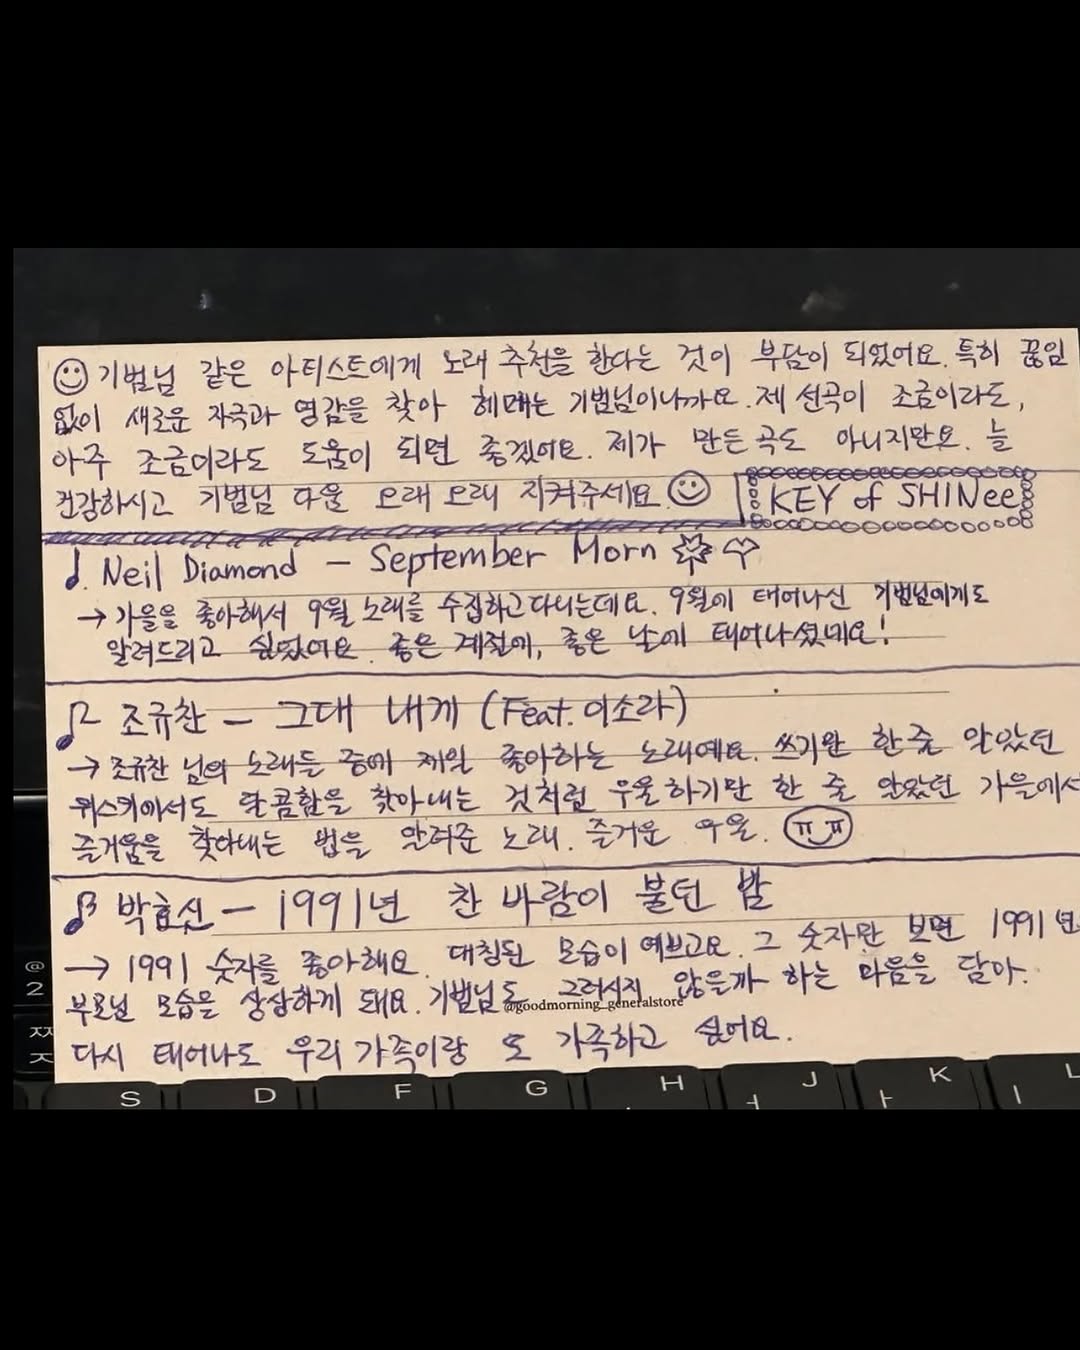 기범님 같은 아티스트에게 노래 추천을 한다는 것이 부담이 되었어요. 특히 끊임
없이 새로운 자극과 영감을 찾아 헤매는 기범님이니까요. 제 선곡이 조금이라도,
아주 조금이라도 도움이 되면 좋겠어요. 제가 만든 곡도 아니지만요. 늘
건강하시고 기범님 다움 오래 오래 지켜주세요.
KEY of SHINee
Neil Diamond - September Morn
→ 가을을 좋아해서 9월 노래를 수집하고 다니는데요. 9월에 태어나신 기범님에게도
알려드리고 싶었어요. 좋은 계절에, 좋은 날에 태어나셨네요!
조규찬 - 그대 내게 (Feat. 이소라)
→ 조규찬 님의 노래들 중에 제일 좋아하는 노래예요. 쓰기만 한 줄 알았던
위스키에서도 달콤함을 찾아내는 것처럼 우울하기만 한 줄 알았던 가을에서
즐거움을 찾아내는 법을 알려준 노래. 즐거운 우울. ㅠㅠ
박효신 - 1991년 찬 바람이 불던 밤
→ 1991 숫자를 좋아해요. 대칭된 모습이 예쁘고요. 그 숫자만 보면 1991년
부모님 모습을 상상하게 돼요. 기범님도 그러시지 않을까 하는 마음을 담아.
@goodmorning_generalstore
다시 태어나도 우리 가족이랑 또 가족하고 싶어요.
@
2
ㅉ
ㅈ
S D F G H J K L
ㅓ ㅏ ㅣ